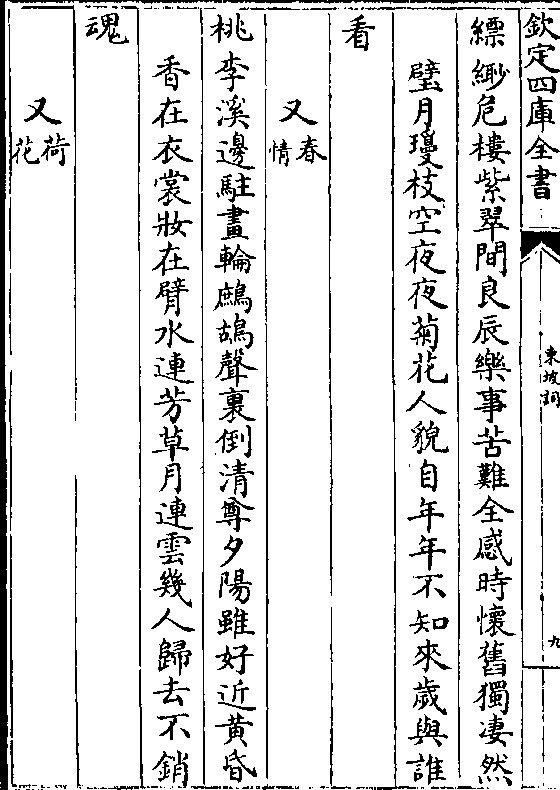 欽定四庫全書
東坡詞
九
縹緲危樓紫翠間良辰樂事苦難全感時懷舊獨凄然
璧月瓊枝空夜夜菊花人貌自年年不知來歲與誰
看
又春情
桃李溪邊駐畫輪鷓鴣聲裏倒清尊夕陽雖好近黄昏
香在衣裳妝在臂水連芳草月連雲幾人歸去不銷
魂
又荷花